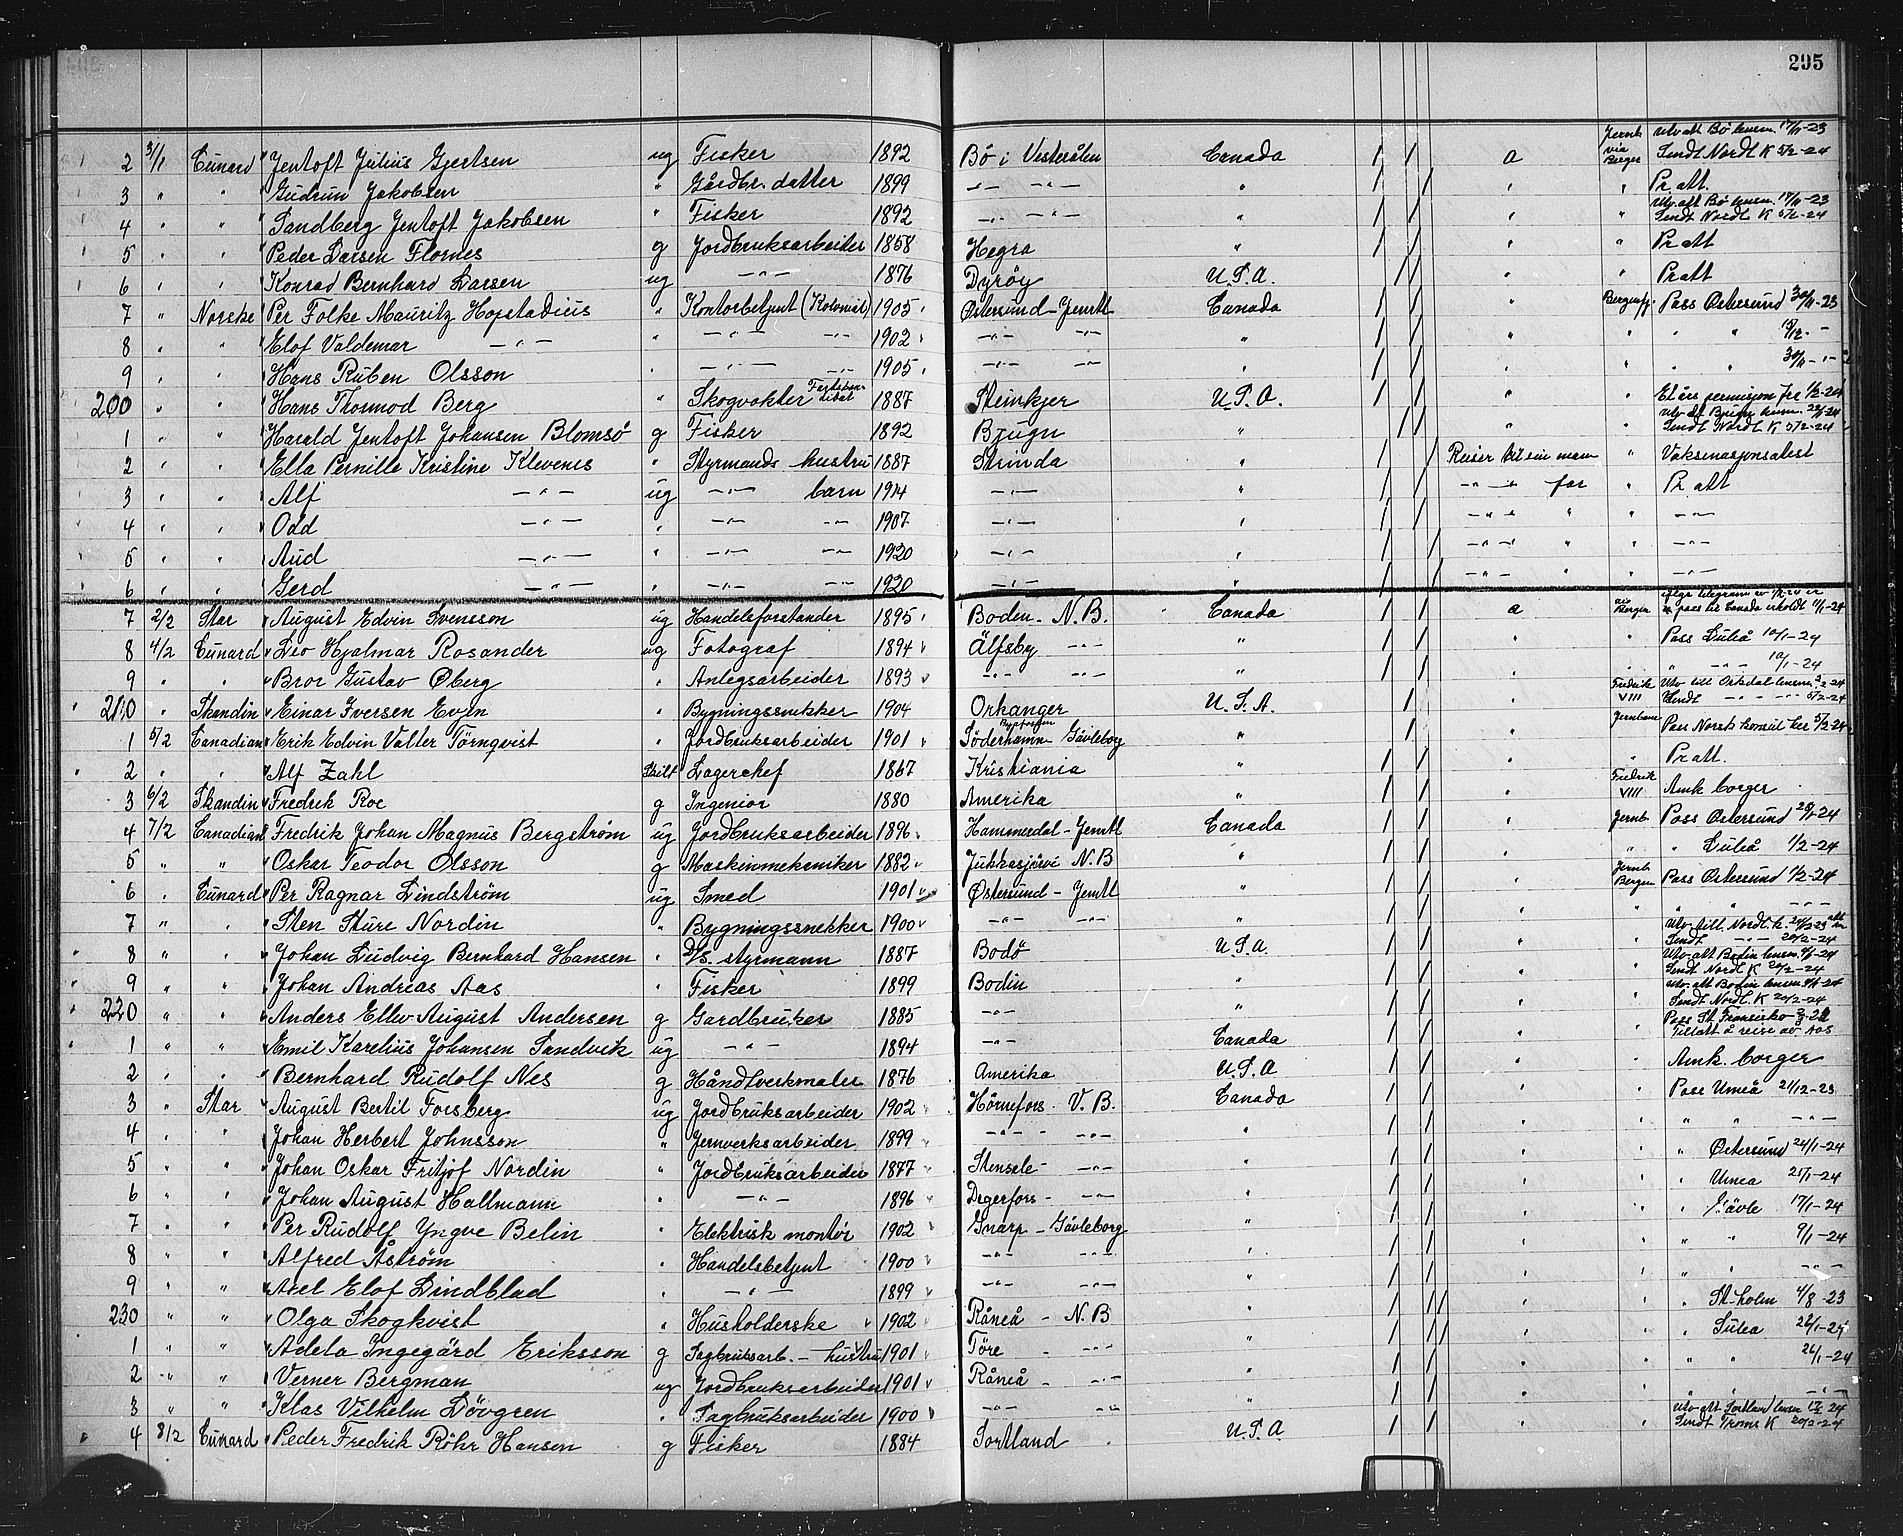 295
2 31/1 Cunard Jentoft Julius Gjertsen ug Fisker 1892 Bö i Vesterålen Canada / / a Jernb via Bergen Utv. att Bö lensm. 17/11-23 Sendt Nordl. K 5/2-24
3 " " Gudrun Jakobsen " Gårdbr. datter 1899 -"- -"- " / / " " Pr. att.
4 " " Sandberg Jentoft Jakobsen " Fisker 1892 -"- -"- " / / " " Utv. att Bö lensm. 17/11-23 Sendt Nordl K 5/2-24
5 " " Peder Larsen Flornes g Jordbruksarbeider 1858 Hegra " / / " " Pr att
6 " " Konrad Bernhard Larsen ug -"- 1876 Dyröy U.S.A. / / " " Pr att
7 " Norske Per Folke Mauritz Hopstadius " Kontorbetjent (Kolonial) 1905 Östersund-Jemtl Canada / / " Bergensfj. Pass Östersund 30/11-23
8 " " Elof Valdemar -"- " -"- -"- 1902 -"- -"- " / / " " " " 19/12 -
9 " " Hans Ruben Olsson " -"- -"- 1905 -"- -"- " / / " " " " 30/11 -"-
200 " " Hans Thormod Berg " Skogvokter 1887 Steinkjer U.S.A. / / " " Et års permisjon fra 1/2-24
1 " " Harald Jentoft Johansen Blomsö g Fisker 1892 Bjugn " / / " " Utv. att Bjugn lensm. Sendt Nordl K 5/2-24
2 " " Ella Pernille Kristine Klevenes " Styrmands hustru 1887 Strinda " / / Reiser til sin man " Vaksinasjonsatest
3 " " Alf -"- ug -"- barn 1914 -"- " / / -"- " far " Pr att
4 " " Odd -"- " -"- -"- 1907 -"- " / / -"- " " " -"-
5 " " Aud -"- " -"- -"- 1920 -"- " / / -"- " " " -"-
6 " " Gerd -"- " -"- -"- 1920 -"- " / / -"- " " " -"-
7 2/2 Star August Edvin Svensson ug Handelsforstander 1895 Boden - N.B. Canada / / a via Bergen pass til Canada erholdt 11/1-24
8 4/2 Cunard Leo Hjalmar Rosander ug Fotograf 1894 Älfsby -"- " / / " " Pass Luleå 10/1-24
9 " " Bror Gustav Öberg " Anlegsarbeider 1893 -"- -"- " / / " " " -"- 10/1-24
210 " Skandin Einar Iversen Evjen " Bygningssnekker 1904 Orkanger U.S.A. / " Fredrik VIII Utv. till Orkdal lensm. Sendt -"- 5/2-24
1 5/2 Canadian Erik Edvin Valter Törnqvist " Jordbruksarbeider 1901 Söderhamn Gävleborg " / " Jernbane Pass Norsk konsul her 5/2-24
2 " " Alf Zahl Skilt Lagerchef 1867 Kristiania " / / " " Pr att.
3 6/2 Skandin Fredrik Roe g Ingeniör 1880 Amerika " / / " Fredrik VIII Amk borger
4 7/2 Canadian Fredrik Johan Magnus Bergström ug Jordbruksarbeider 1896 Hammerdal-Jemtl Canada / / " Jernb Pass Östersund 28/1-24
5 " " Oskar Teodor Olsson g Maskinmekaniker 1882 Jukkasjärvi N.B " / / " " " Luleå 1/2-24
6 " Cunard Per Ragnar Lindström ug Smed 1901 Östersund-Jemtl " / / " Jernb Bergen Pass Östersund 1/2-24
7 " " Sten Sture Nordin " Bygningssnekker 1900 -"- -"- " / / " " " " -"-
8 " " Johan Ludvig Bernhard Hansen " D/S. styrmann 1887 Bodö U.S.A. / / " " Utv. till Nordl. k. Sendt -"- 20/2-24
9 " " Johan Andreas Aas " Fisker 1899 Bodin " / / " " Utv att Bodin lensm. Sendt Nordl K 20/2-24
220 " " Anders Ellev August Andersen g Gardbruker 1885 -"- " / / " " Utv. att Bodin lensm. Sendt Nordl. K 20/2-24
1 " " Emil Karelius Johansen Sandvik ug -"- 1894 -"- Canada / / " " Pass St. Fransisko Tillatt å reise av Aas
2 " " Bernhard Rudolf Nes g Håndtverkmaler 1876 Amerika U.S.A / / " " Amk. borger
3 " Star August Bertil Forsberg ug Jordbruksarbeider 1902 Hörnefors - V.B. Canada / / " " Pass Umeå 21/12-23
4 " " Johan Herbert Johnsson " Jernverksarbeider 1899 -"- -"- " / / " " " " -"-
5 " " Johan Oskar Fritjof Nordin " Jordbruksarbeider 1877 Stensele - -"- " / / " " " Östersund 24/1-24
6 " " Johan August Hallmann " -"- 1896 Degerfors - -"- " / / " " " Umea 25/1-24
7 " " Per Rudolf Yngve Belin " Elektrisk montör 1902 Gnarp - Gävleborg " / / " " " Gävle 17/1-24
8 " " Alfred Åström " Handelsbetjent 1900 -"- -"- " / / " " " " 9/1-24
9 " " Axel Elof Lindblad " -"- 1899 -"- -"- " / / " " " " -"-
230 " " Olga Skogkvist " Husholderske 1902 Råneå - N.B " / // " " " St-holm 4/8-23
1 " " Adela Ingegärd Eriksson g Sagbruksarb. - hustru 1901 Töre - -"- " / // " " " Lulea 26/1-24
2 " " Verner Bergman ug Jordbruksarbeider 1901 Råneå - -"- " / / " " " " 26/1-24
3 " " Klas Vilhelm Lövgren " Sagbruksarbeider 1900 " / / " " " " -"-
4 8/2 Cunard Peder Fredrik Röhr Hansen g Fisker 1884 Sortland U.S.A / / " " Utv. att Sortland lensm. Sendt Troms K 20/2-24